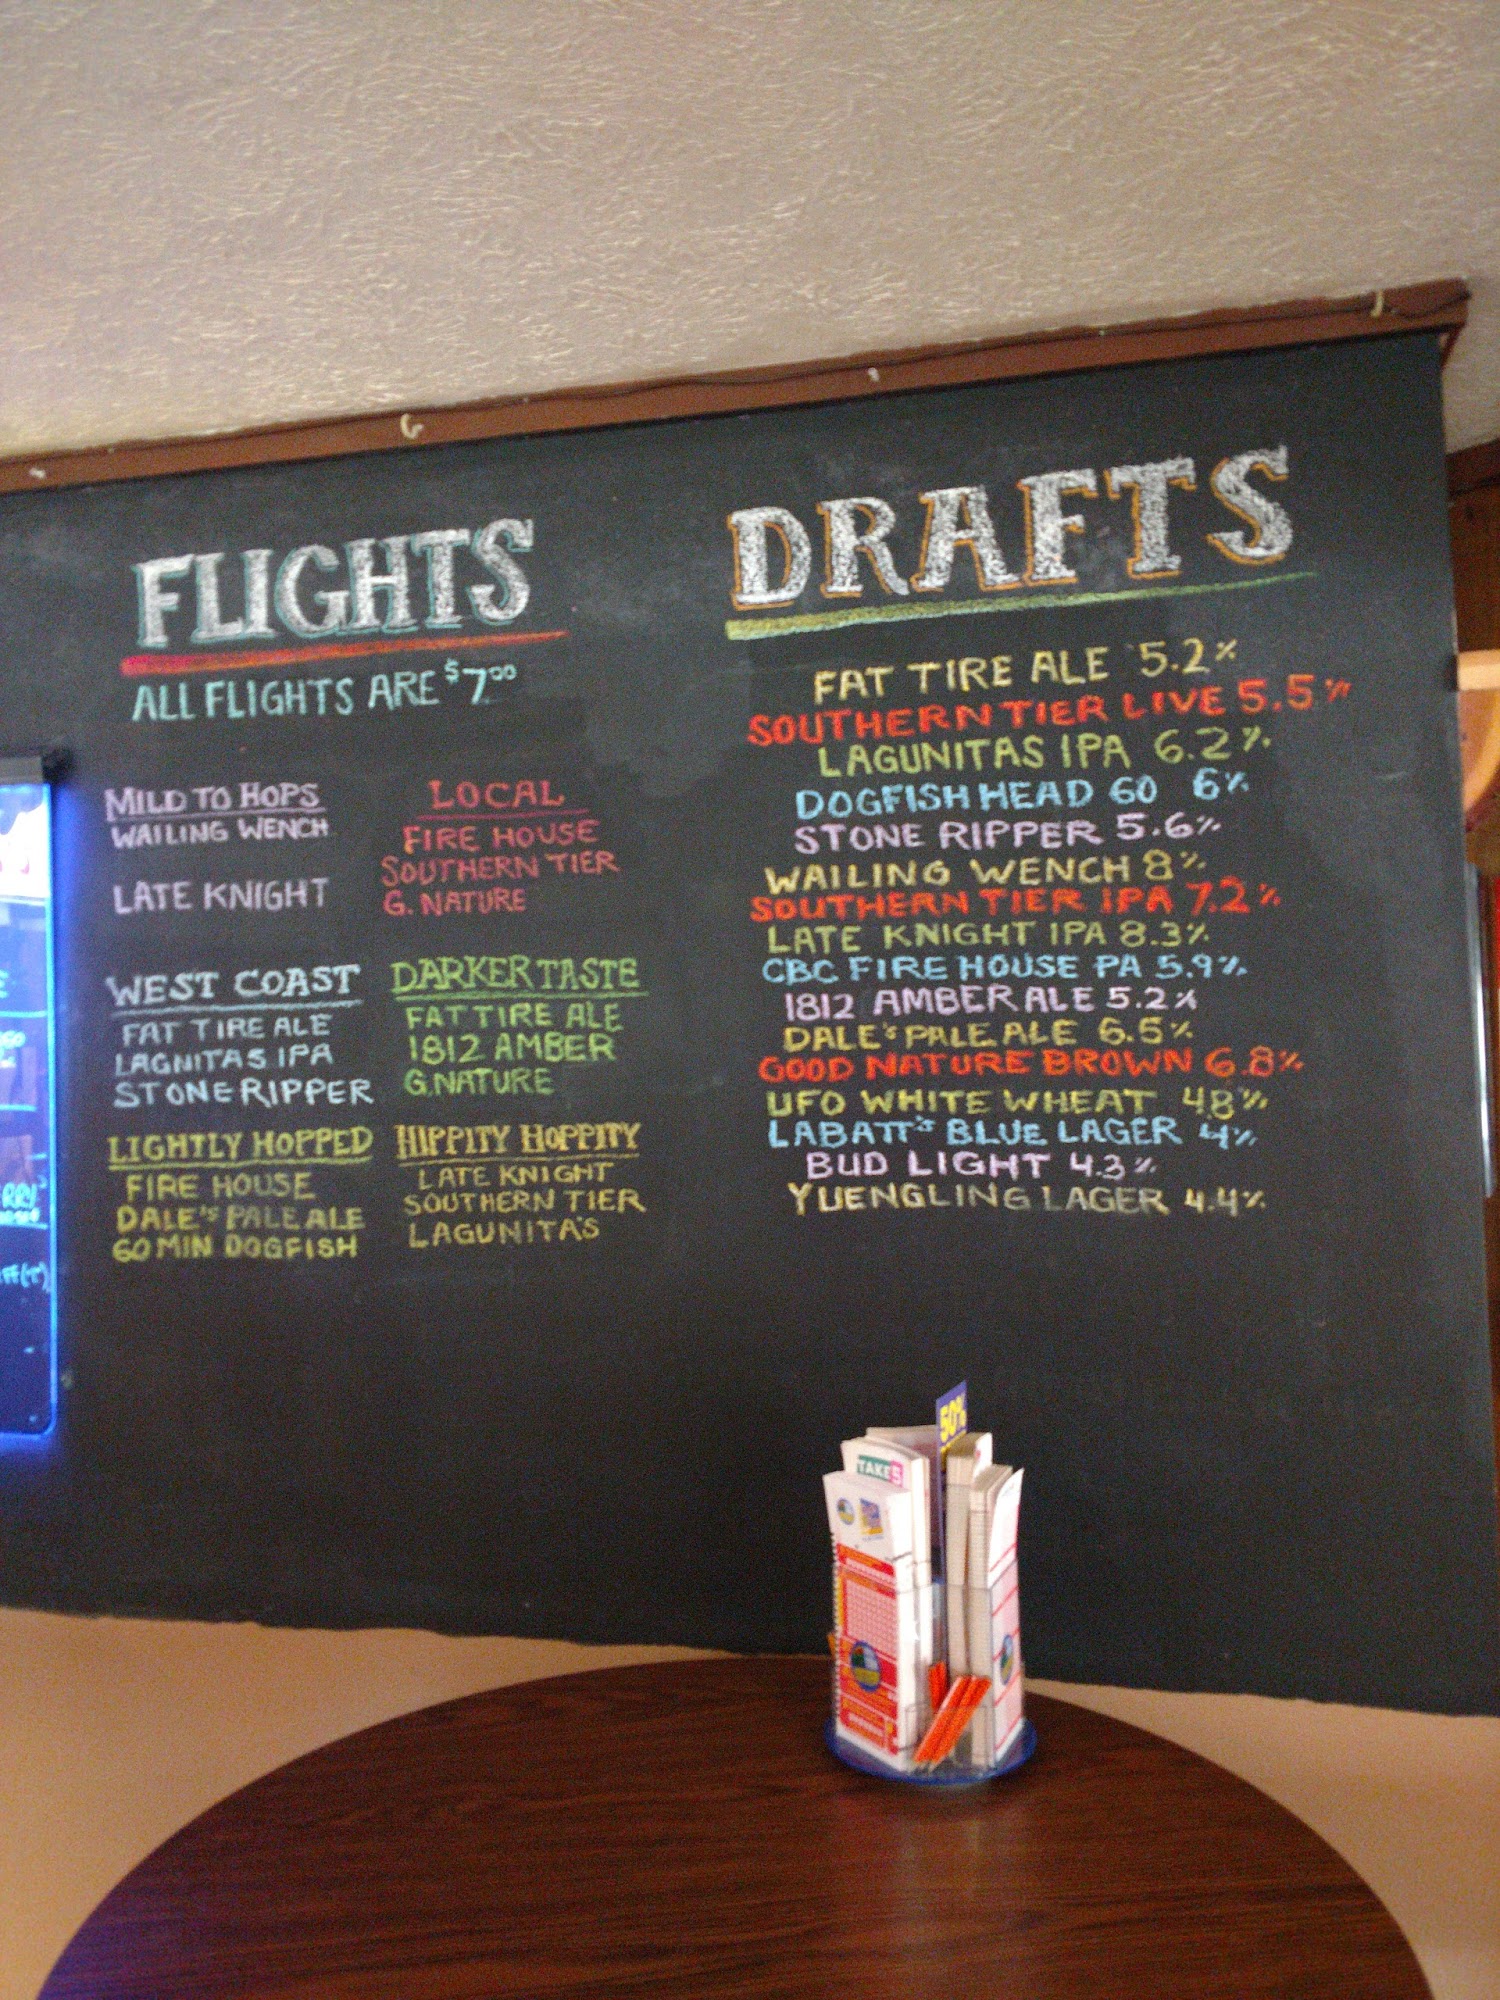 FLIGHTS
ALL FLIGHTS ARE $7.00
MILD TO HOPS
WAILING WENCH
LATE KNIGHT
LOCAL
FIRE HOUSE
SOUTHERN TIER
G. NATURE
WEST COAST
FAT TIRE ALE
LAGNITAS IPA
STONE RIPPER
DARKER TASTE
FAT TIRE ALE
1812 AMBER
G. NATURE
LIGHTLY HOPPED
FIRE HOUSE
DALE'S PALE ALE
60 MIN DOGFISH
HIPPITY HOPPITY
LATE KNIGHT
SOUTHERN TIER
LAGUNITA'S
DRAFTS
FAT TIRE ALE 5.2%
SOUTHERN TIER LIVE 5.5%
LAGUNITAS IPA 6.2%
DOGFISH HEAD 60 6%
STONE RIPPER 5.6%
WAILING WENCH 8%
SOUTHERN TIER IPA 7.2%
LATE KNIGHT IPA 8.3%
CBC FIRE HOUSE PA 5.9%
1812 AMBER ALE 5.2%
DALE'S PALE ALE 6.5%
GOOD NATURE BROWN 6.8%
UFO WHITE WHEAT 4.8%
LABATT'S BLUE LAGER 4%
BUD LIGHT 4.3%
YUENGLING LAGER 4.4%
50%
TAKE 5